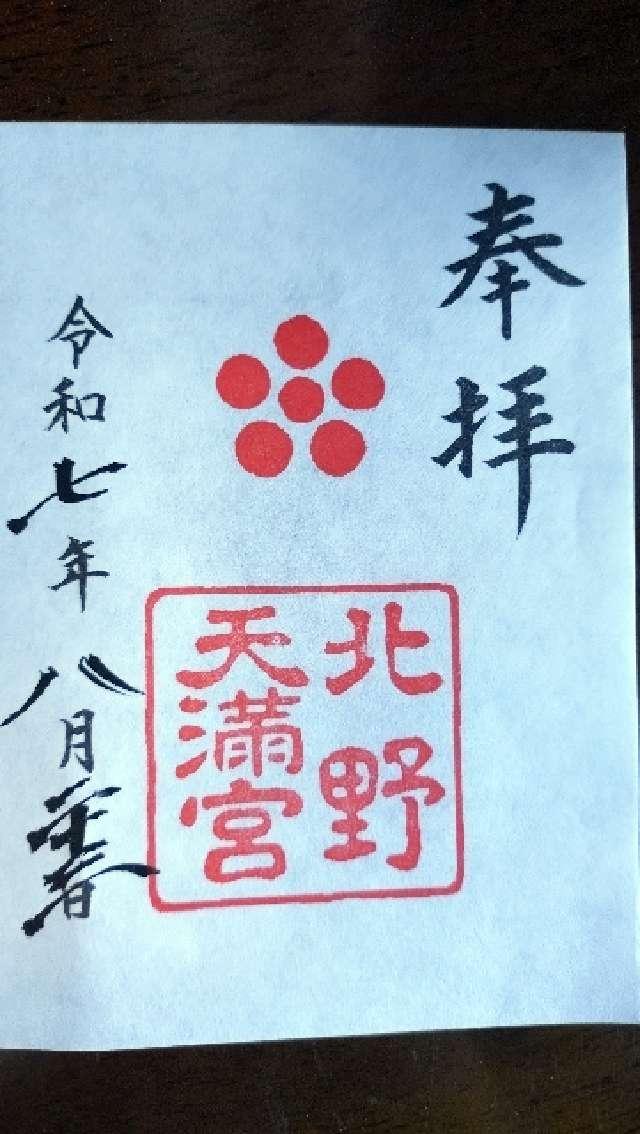 奉拝
北野
天満宮
令和七年八月